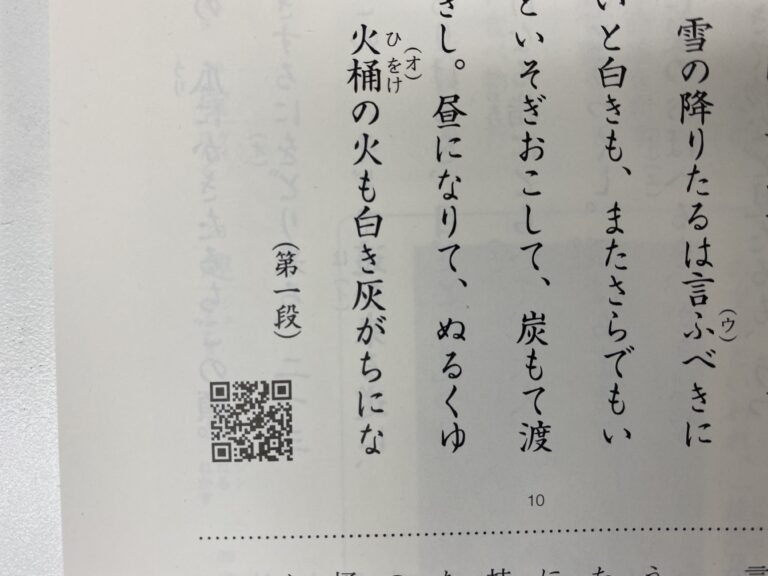 雪の降りたるは言ふべきに
(ウ)
いと白きも、またさらでもい
といそぎおこして、炭もて渡
きし。昼になりて、ぬるくゆ
火桶の火も白き灰がちにな
ひをけ
(オ)
(第一段)
10